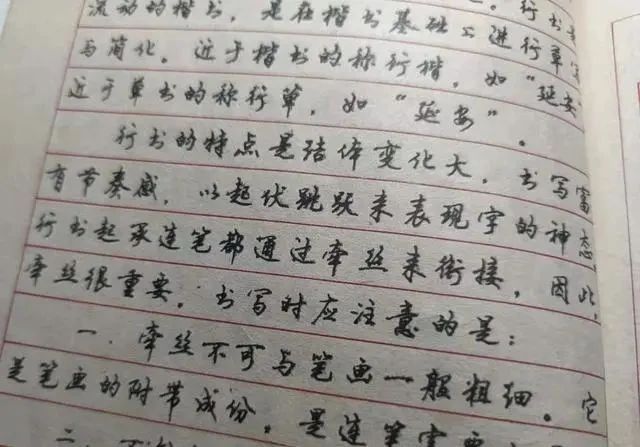 流动的楷书，是在楷书基础上进行草写
与简化。近于楷书的称行楷，如“延安”
近于草书的称行草，如“延安”。
行书的特点是结体变化大，书写富
有节奏感，以起伏跳跃来表现字的神态。
行书起承连笔都通过牵丝来衔接，因此，
牵丝很重要。书写时应注意的是：
一、牵丝不可与笔画一般粗细。它
是笔画的附带成份，是连笔
二、